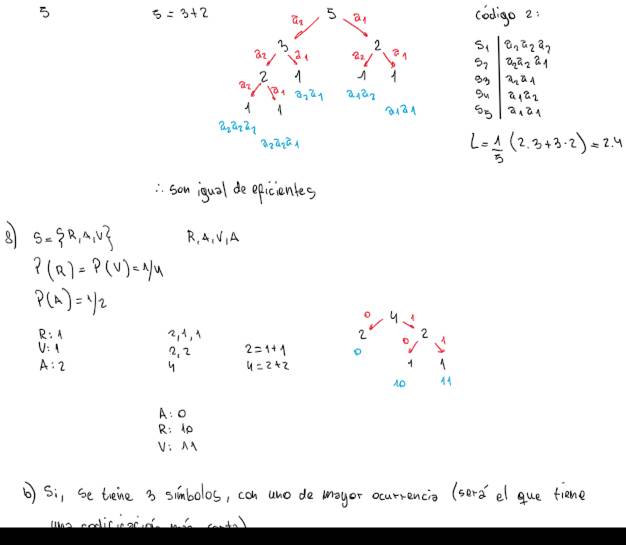 5
5 = 3+2
a₂ 5 a₁
3 2
a₂ a₁ a₂ a₁
2 1 1 1
a₂ a₁ a₂a₁ a₁a₂ a₁a₁
1 1
a₂a₂a₂
a₂a₂a₁
código 2:
S₁ | a₂a₂a₂
S₂ | a₂a₂a₁
S₃ | a₂a₁
S₄ | a₁a₂
S₅ | a₁a₁
L = 1/5 (2.3+3.2) = 2.4
∴ son igual de eficientes
8) S = {R,A,V} R,A,V,A
P(R) = P(V) = 1/4
P(A) = 1/2
R: 1 2,1,1
V: 1 2,2 2=1+1
A: 2 4 4=2+2
0 4 1
2 2
0 0 1
1 1
10 11
A: 0
R: 10
V: 11
b) Si, se tiene 3 símbolos, con uno de mayor ocurrencia (será el que tiene
una codificación más corta)